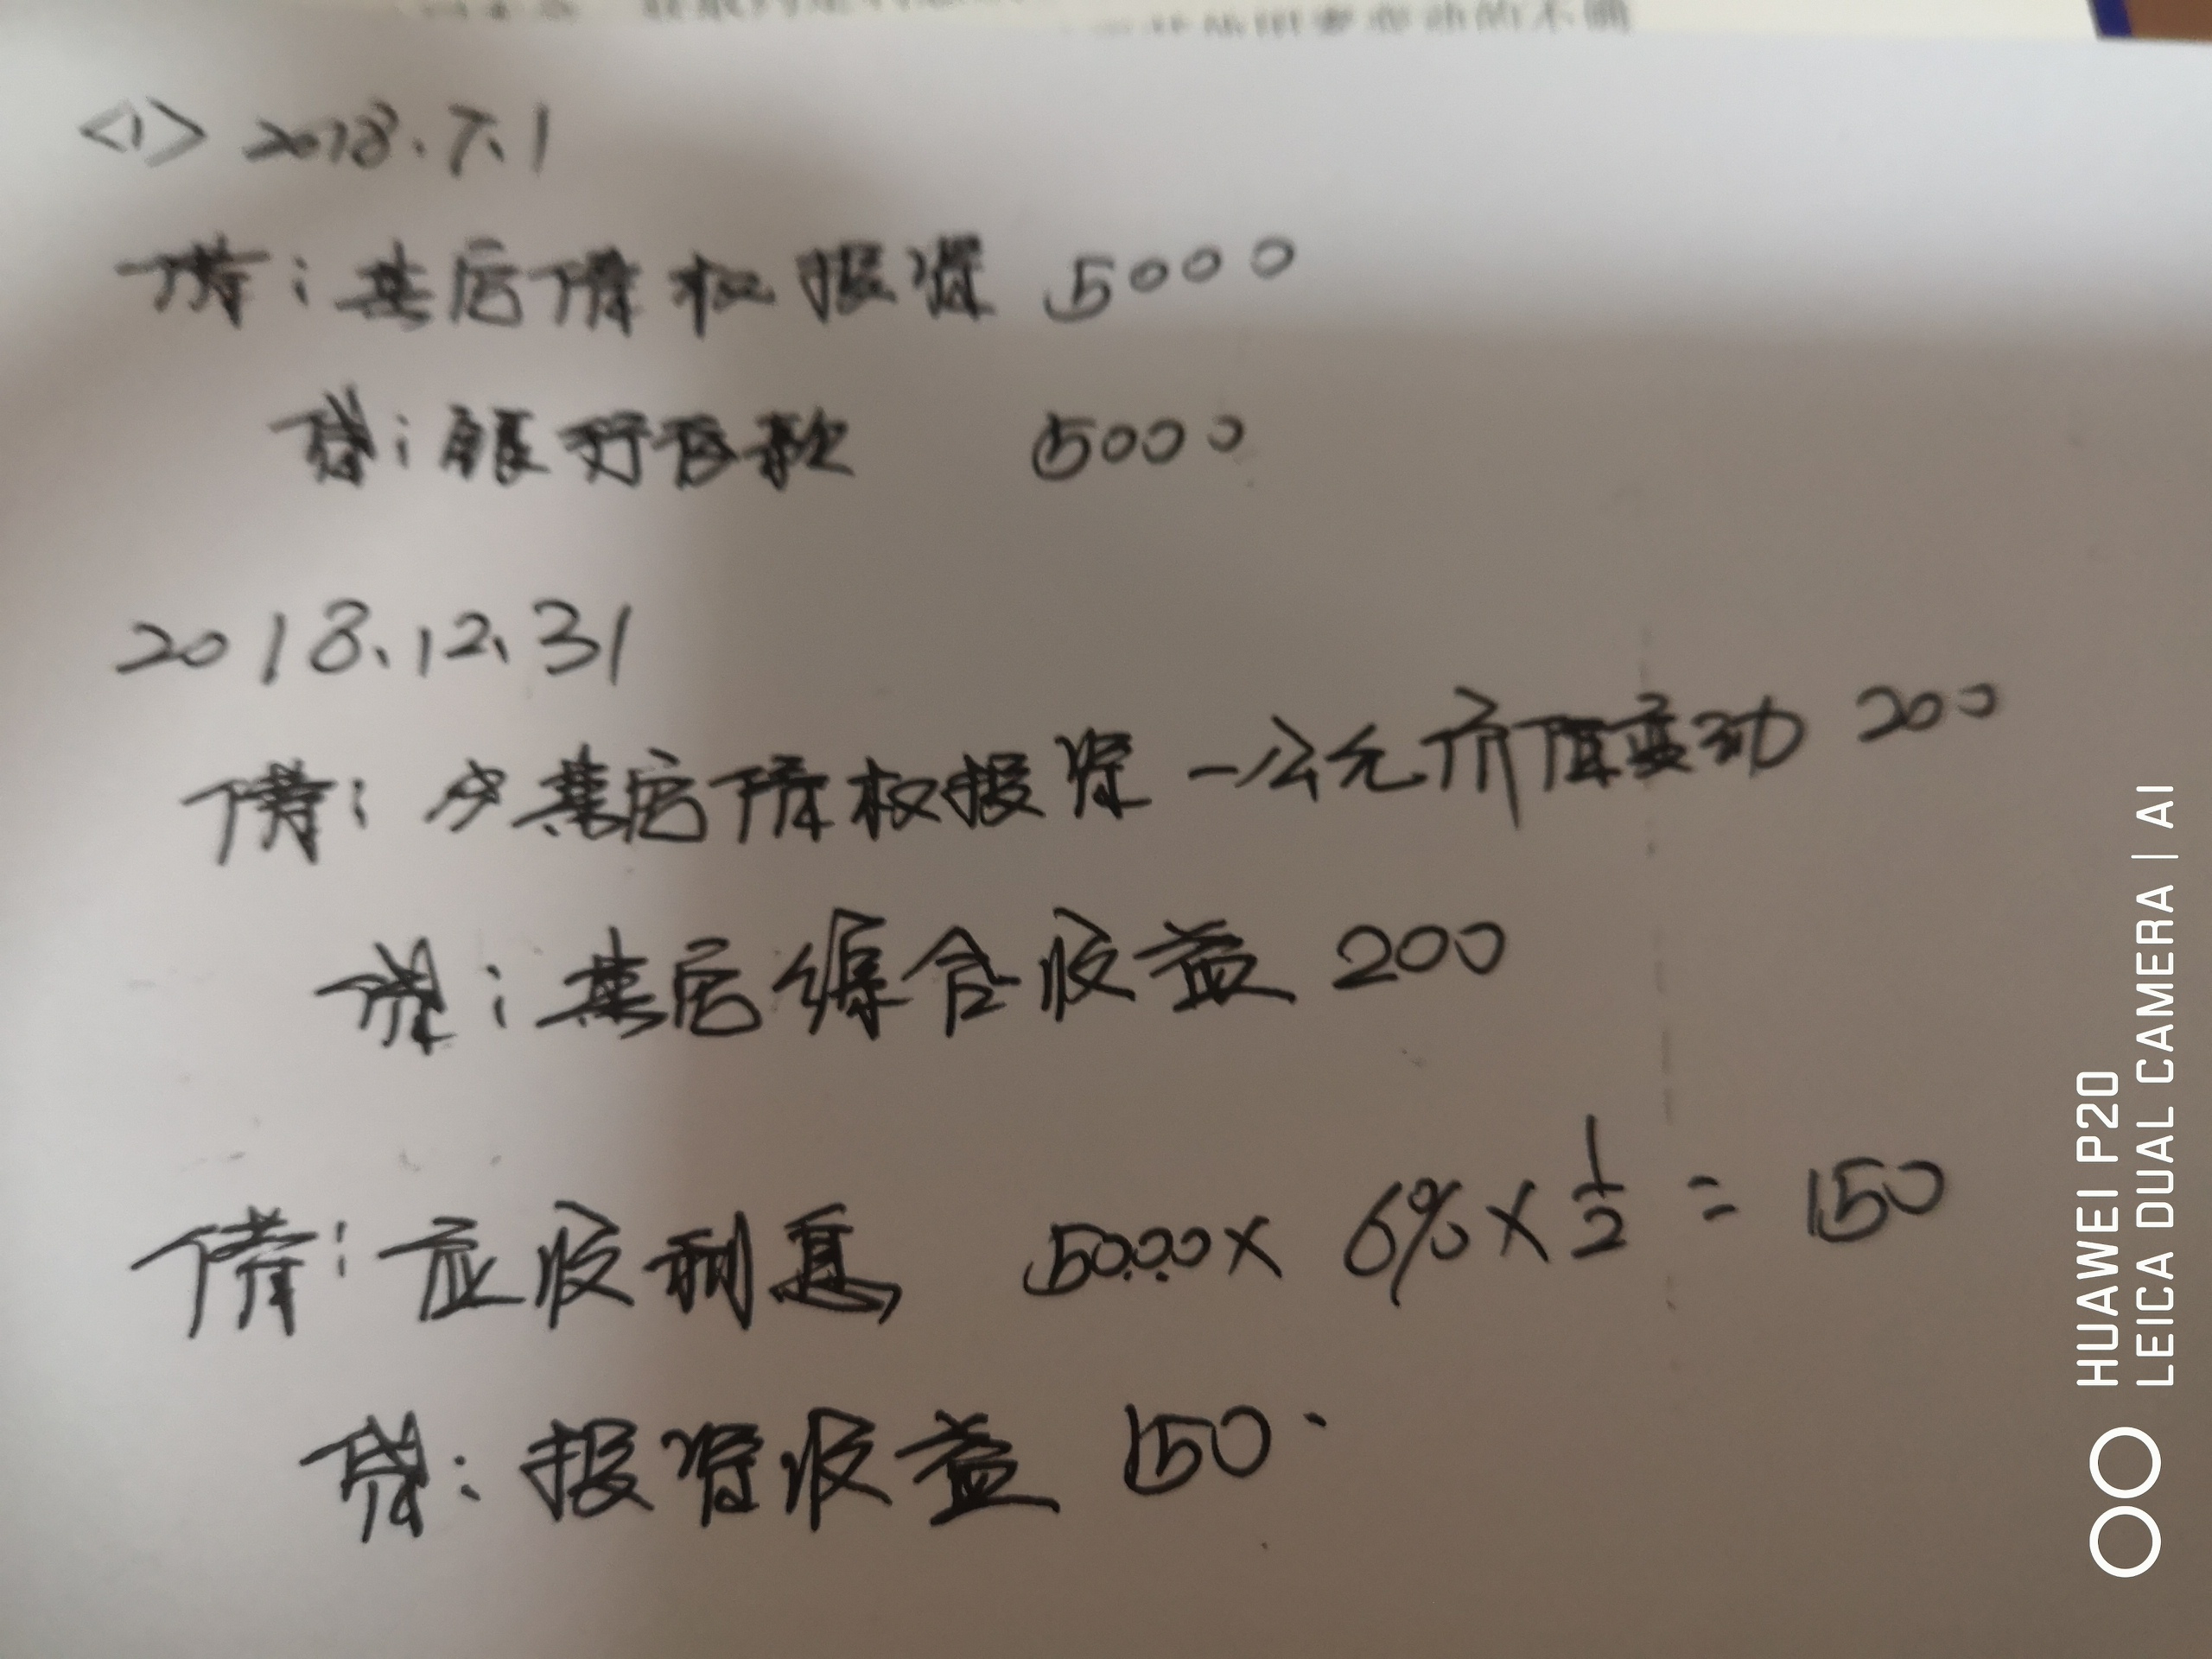 <1> 2018.7.1
借:其他债权投资 5000
贷:银行存款 5000
2018.12.31
借:其他债权投资-公允价值变动 200
贷:其他综合收益 200
借:应收利息 5000× 6%×1/2 = 150
贷:投资收益 150
HUAWEI P20
LEICA DUAL CAMERA | AI